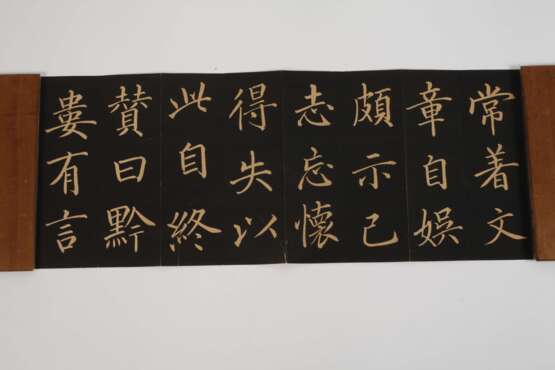 常着文
章自娯
頗示己
志忘懐
得失以
此自終
賛曰黔
婁有言